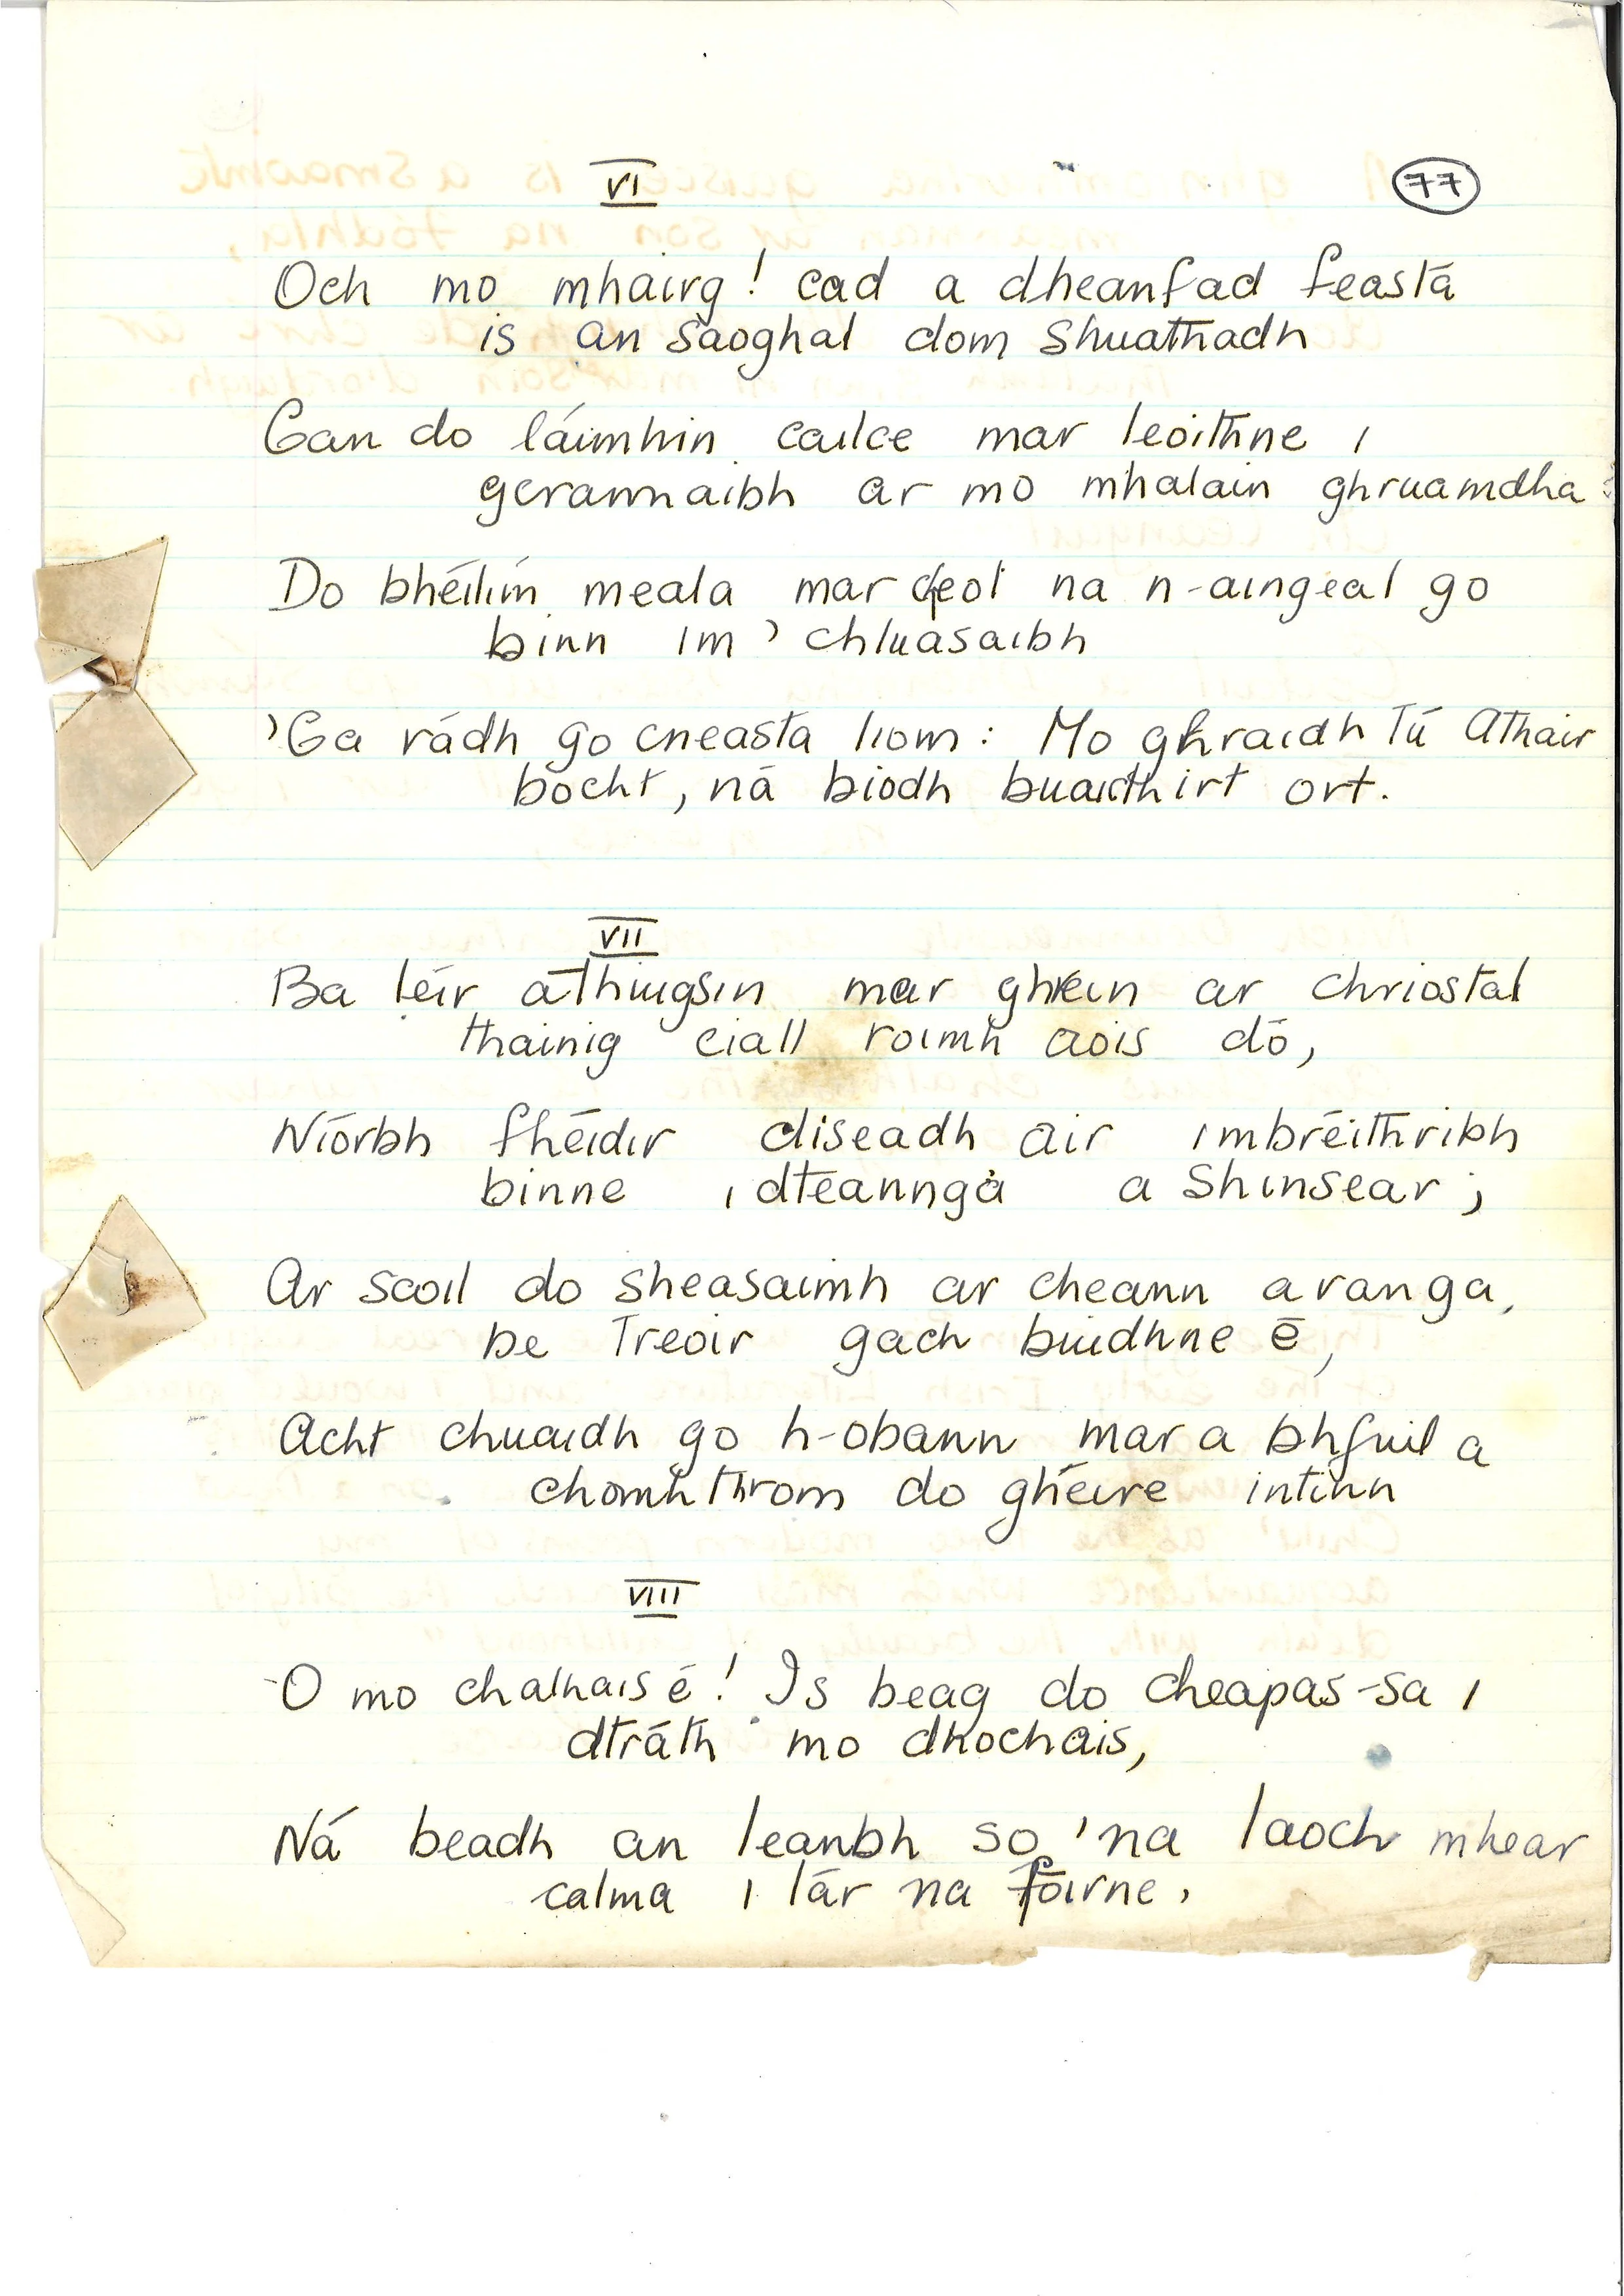 VI
77
Och mo mhairg! cad a dheanfad feasta
is an saoghal dom shuathadh
Gan do láimhin cailce mar leoithne i
gcrannaibh ar mo mhalain ghruamdha
Do bhéilín meala mar cheol na n-aingeal go
binn im' chluasaibh
'Ga rádh go cneasta liom: Mo ghraidh Tú Athair
bocht, ná biodh buaidhirt ort.
VII
Ba léir a thuigsin mar ghrein ar chriostal
thainig ciall roimh aois dó,
Níorbh fhéidir diseadh air imbréithribh
binne i dteannga a shinsear;
Ar scoil do sheasaimh ar cheann a ranga,
be Treoir gach buidhne é,
Acht chuaidh go h-obann mar a bhfuil a
chomhthrom do ghéire intinn
VIII
O mo chathaisé! Is beag do cheapas-sa i
dtráth mo dhochais,
Ná beadh an leanbh so 'na laoch mhear
calma i lár na foirne,